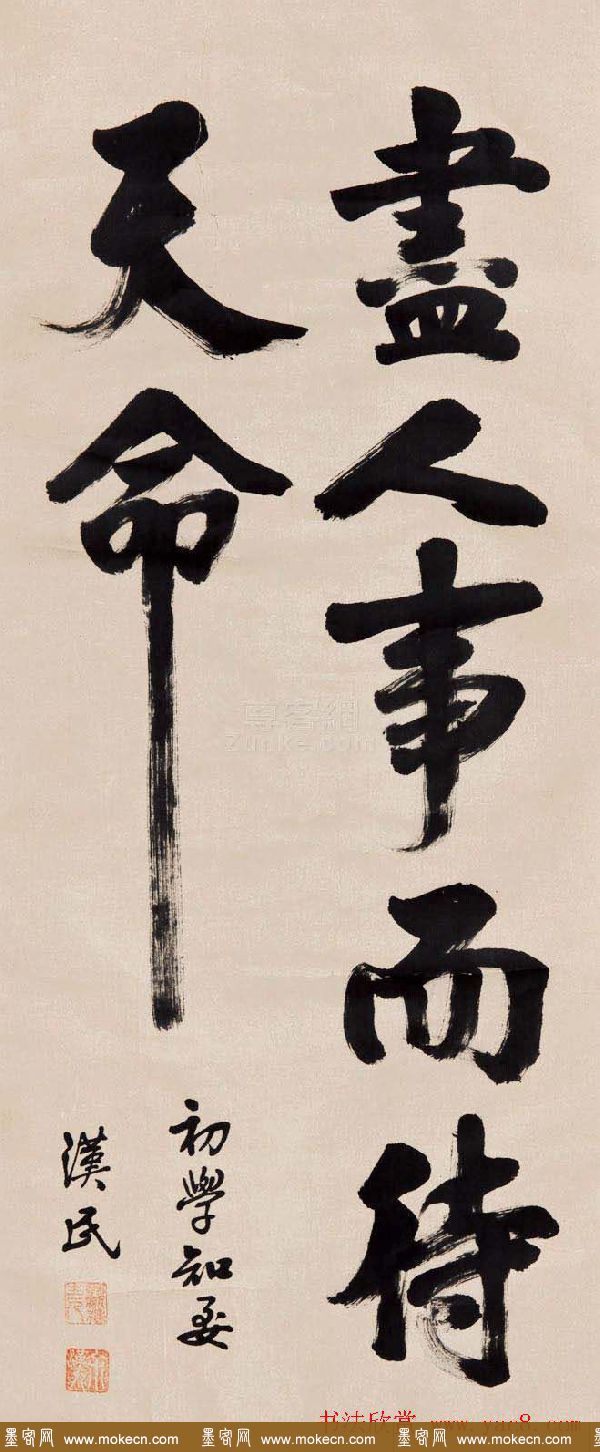 盡人事而待
天命
初學知要
漢民
尊客網
Zunke.com
书法欣赏 www.yac8.com
墨客网 www.mokecn.com 墨客网 www.mokecn.com 墨客网 www.mokecn.com